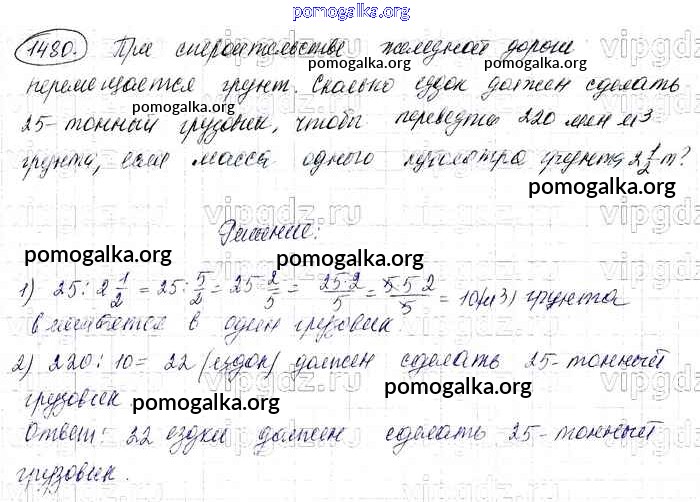 pomogalka.org
1480. При строительстве железной дороги
перемещается грунт. Сколько ездок должен сделать
pomogalka.org pomogalka.org
25-тонный грузовик, чтобы перевезти 220 млн м3
грунта, если масса одного кубометра грунта 2 1/2 т?
pomogalka.org
vipgdz.ru
Решение:
pomogalka.org pomogalka.org
1) 25 : 2 1/2 = 25 : 5/2 = 25 · 2/5 = 25·2/5 = 5·5·2/5 = 10 (м3) грунта
вмещается в один грузовик.
2) 220 : 10 = 22 (ездок) должен сделать 25-тонный
pomogalka.org
грузовик
pomogalka.org
Ответ: 22 ездки должен сделать 25-тонный
грузовик.